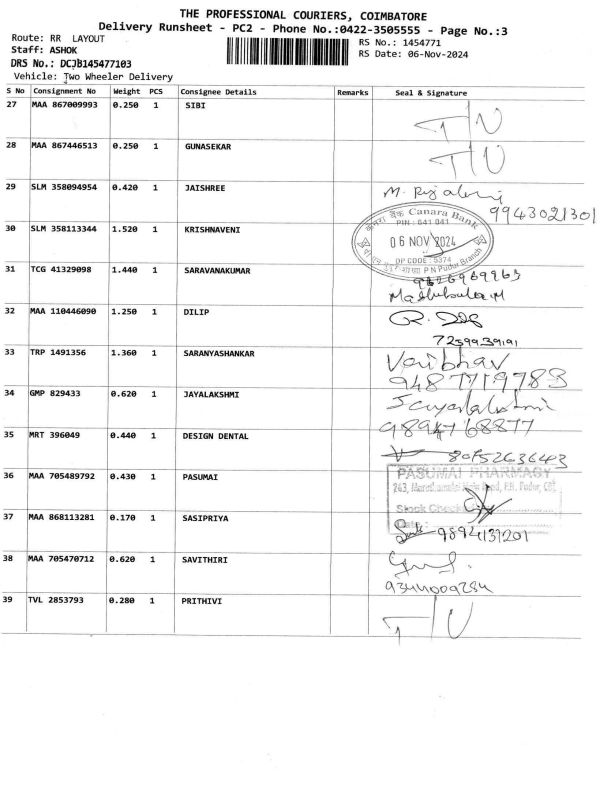 THE PROFESSIONAL COURIERS, COIMBATORE
Delivery Runsheet - PC2 - Phone No.:0422-3505555 - Page No.:3
Route: RR LAYOUT
RS No.: 1454771
Staff: ASHOK
RS Date: 06-Nov-2024
DRS No.: DCJB145477103
Vehicle: Two Wheeler Delivery
S No Consignment No Weight PCS Consignee Details Remarks Seal & Signature
27 MAA 867009993 0.250 1 SIBI
28 MAA 867446513 0.250 1 GUNASEKAR
29 SLM 358094954 0.420 1 JAISHREE
9943021301
Canara Bank
PIN : 641 041
30 SLM 358113344 1.520 1 KRISHNAVENI
06 NOV 2024
DP CODE : 5374
P N Pudur Branch
31 TCG 41329098 1.440 1 SARAVANAKUMAR
32 MAA 110446090 1.250 1 DILIP
33 TRP 1491356 1.360 1 SARANYASHANKAR
Vaibhav
9487719783
34 GMP 829433 0.620 1 JAYALAKSHMI
Jayalakshmi
35 MRT 396049 0.440 1 DESIGN DENTAL
36 MAA 705489792 0.430 1 PASUMAI
PASUMAI PHARMACY
Stock Check
37 MAA 868113281 0.170 1 SASIPRIYA
9894131201
38 MAA 705470712 0.620 1 SAVITHIRI
39 TVL 2853793 0.280 1 PRITHIVI